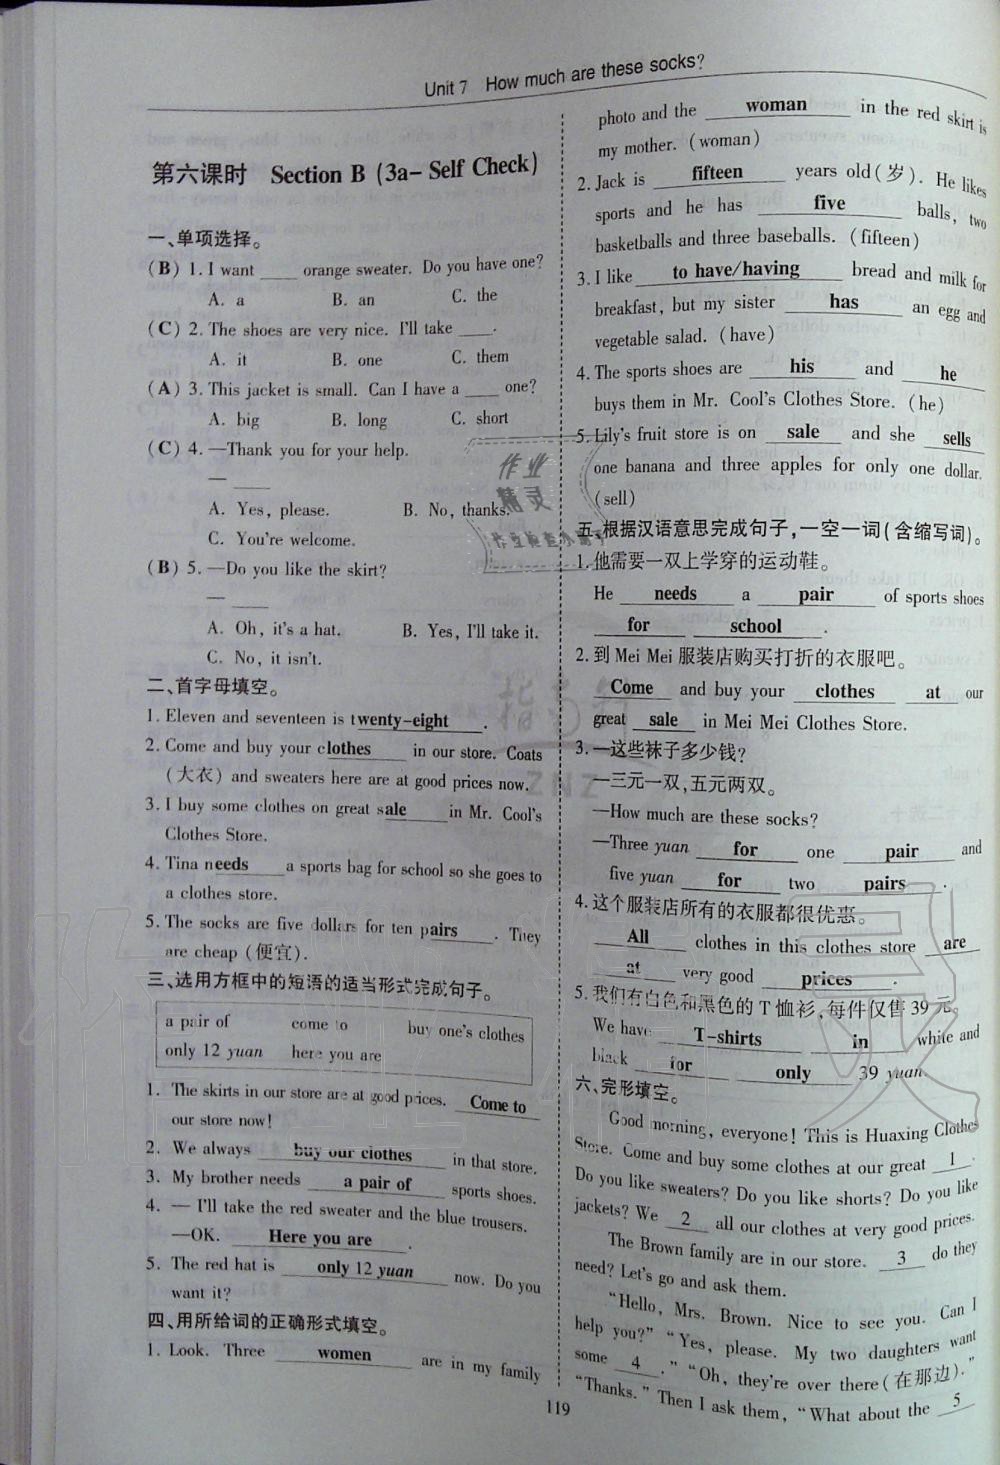 Unit 7 How much are these socks?
第六课时 Section B (3a- Self Check)
一、单项选择。
(B) 1. I want ____ orange sweater. Do you have one?
A. a B. an C. the
(C) 2. The shoes are very nice. I'll take ____.
A. it B. one C. them
(A) 3. This jacket is small. Can I have a ____ one?
A. big B. long C. short
(C) 4. —Thank you for your help.
— ____
A. Yes, please. B. No, thanks.
C. You're welcome.
(B) 5. —Do you like the skirt?
— ____
A. Oh, it's a hat. B. Yes, I'll take it.
C. No, it isn't.
二、首字母填空。
1. Eleven and seventeen is twenty-eight.
2. Come and buy your clothes in our store. Coats
(大衣) and sweaters here are at good prices now.
3. I buy some clothes on great sale in Mr. Cool's
Clothes Store.
4. Tina needs a sports bag for school so she goes to
a clothes store.
5. The socks are five dollars for ten pairs. They
are cheap (便宜).
三、选用方框中的短语的适当形式完成句子。
a pair of come to buy one's clothes
only 12 yuan here you are
1. The skirts in our store are at good prices. Come to
our store now!
2. We always buy our clothes in that store.
3. My brother needs a pair of sports shoes.
4. — I'll take the red sweater and the blue trousers.
—OK. Here you are.
5. The red hat is only 12 yuan now. Do you
want it?
四、用所给词的正确形式填空。
1. Look. Three women are in my family
photo and the woman in the red skirt is
my mother. (woman)
2. Jack is fifteen years old(岁). He likes
sports and he has five balls, two
basketballs and three baseballs. (fifteen)
3. I like to have/having bread and milk for
breakfast, but my sister has an egg and
vegetable salad. (have)
4. The sports shoes are his and he
buys them in Mr. Cool's Clothes Store. (he)
5. Lily's fruit store is on sale and she sells
one banana and three apples for only one dollar.
(sell)
五、根据汉语意思完成句子,一空一词(含缩写词)。
1. 他需要一双上学穿的运动鞋。
He needs a pair of sports shoes
for school.
2. 到 Mei Mei 服装店购买打折的衣服吧。
Come and buy your clothes at our
great sale in Mei Mei Clothes Store.
3. —这些袜子多少钱?
—三元一双,五元两双。
—How much are these socks?
—Three yuan for one pair and
five yuan for two pairs.
4. 这个服装店所有的衣服都很优惠。
All clothes in this clothes store are
at very good prices.
5. 我们有白色和黑色的 T 恤衫,每件仅售 39 元。
We have T-shirts in white and
black for only 39 yuan.
六、完形填空。
Good morning, everyone! This is Huaxing Clothes
Store. Come and buy some clothes at our great 1.
Do you like sweaters? Do you like shorts? Do you like
jackets? We 2 all our clothes at very good prices.
The Brown family are in our store. 3 do they
need? Let's go and ask them.
"Hello, Mrs. Brown. Nice to see you. Can I
help you?" "Yes, please. My two daughters want
some 4." "Oh, they're over there(在那边)."
"Thanks." Then I ask them, "What about the 5
119
作业
精灵
作业检查小帮手
ZNZ